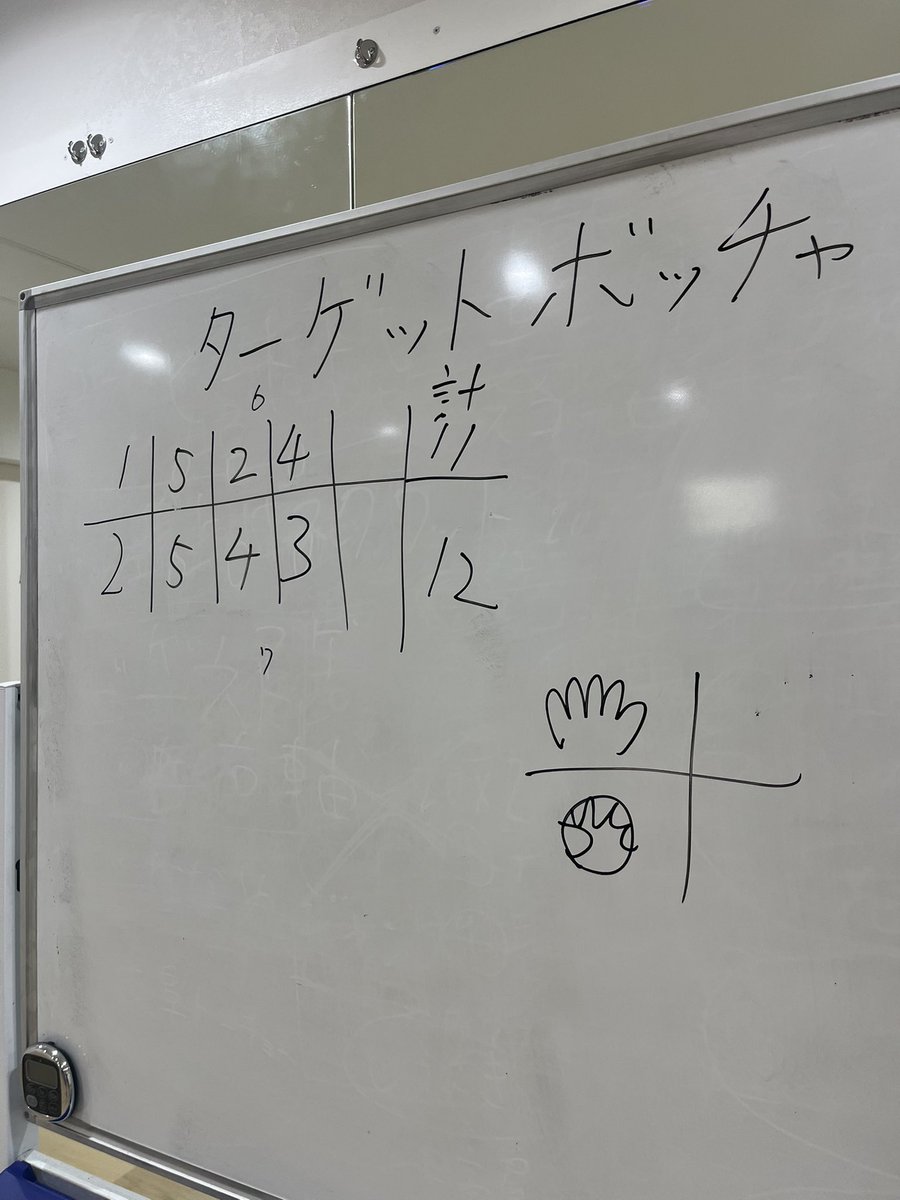 ターゲットボッチャ
計
6
1 5 2 4 11
2 5 4 3 12